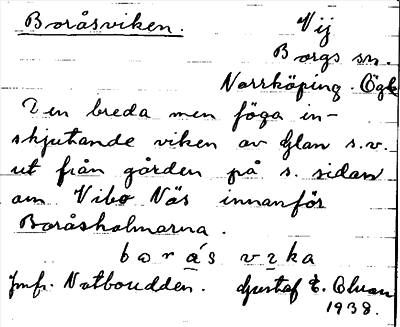 Boråsviken. Vij
Borgs sn.
Norrköping. Ögl
Den breda men föga in-
skjutande viken av Glan s.v.
ut från gården på s. sidan
om Vibo Näs innanför
Boråsholmarna.
borå´s vika
Jmfr. Notboudden. Gustaf E.
1938.